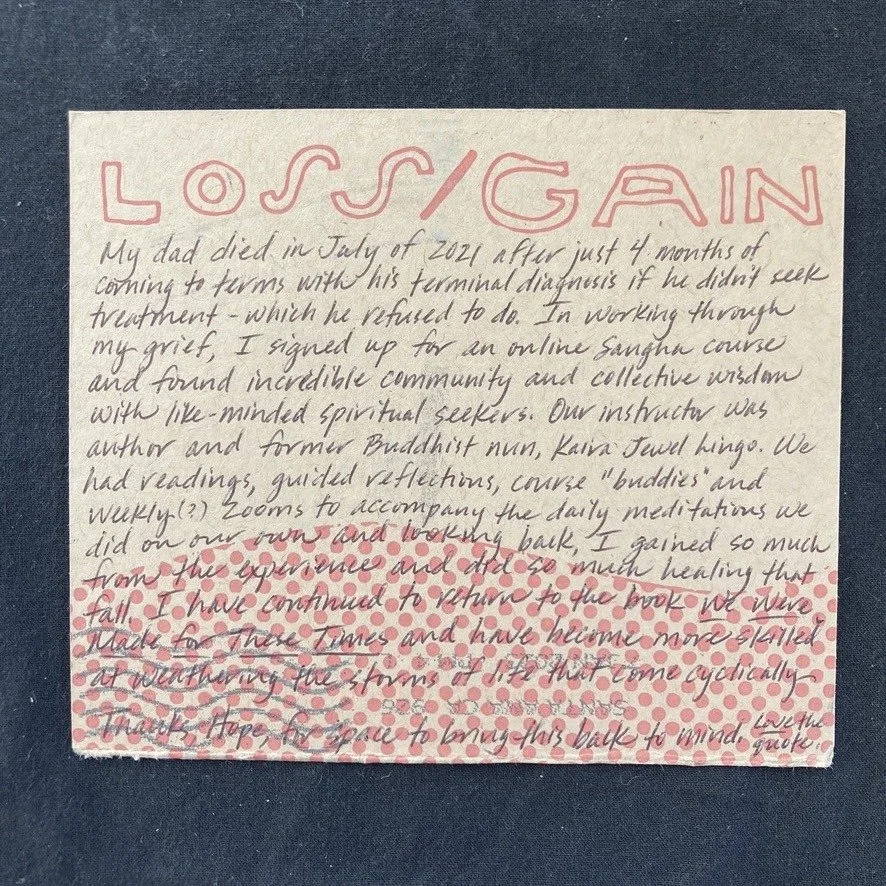 LOSS/GAIN
My dad died in July of 2021 after just 4 months of
coming to terms with his terminal diagnosis if he didn't seek
treatment - which he refused to do. In working through
my grief, I signed up for an online Sangha course
and found incredible community and collective wisdom
with like-minded spiritual seekers. Our instructor was
author and former Buddhist nun, Kaira Jewel Lingo. We
had readings, guided reflections, course "buddies" and
weekly(?) Zooms to accompany the daily meditations we
did on our own and looking back, I gained so much
from the experience and did so much healing that
fall. I have continued to return to the book We Were
Made for These Times and have become more skilled
at weathering the storms of life that come cyclically
Thanks, Hope, for space to bring this back to mind. Love the
quote.
SANTA ANA CA 926